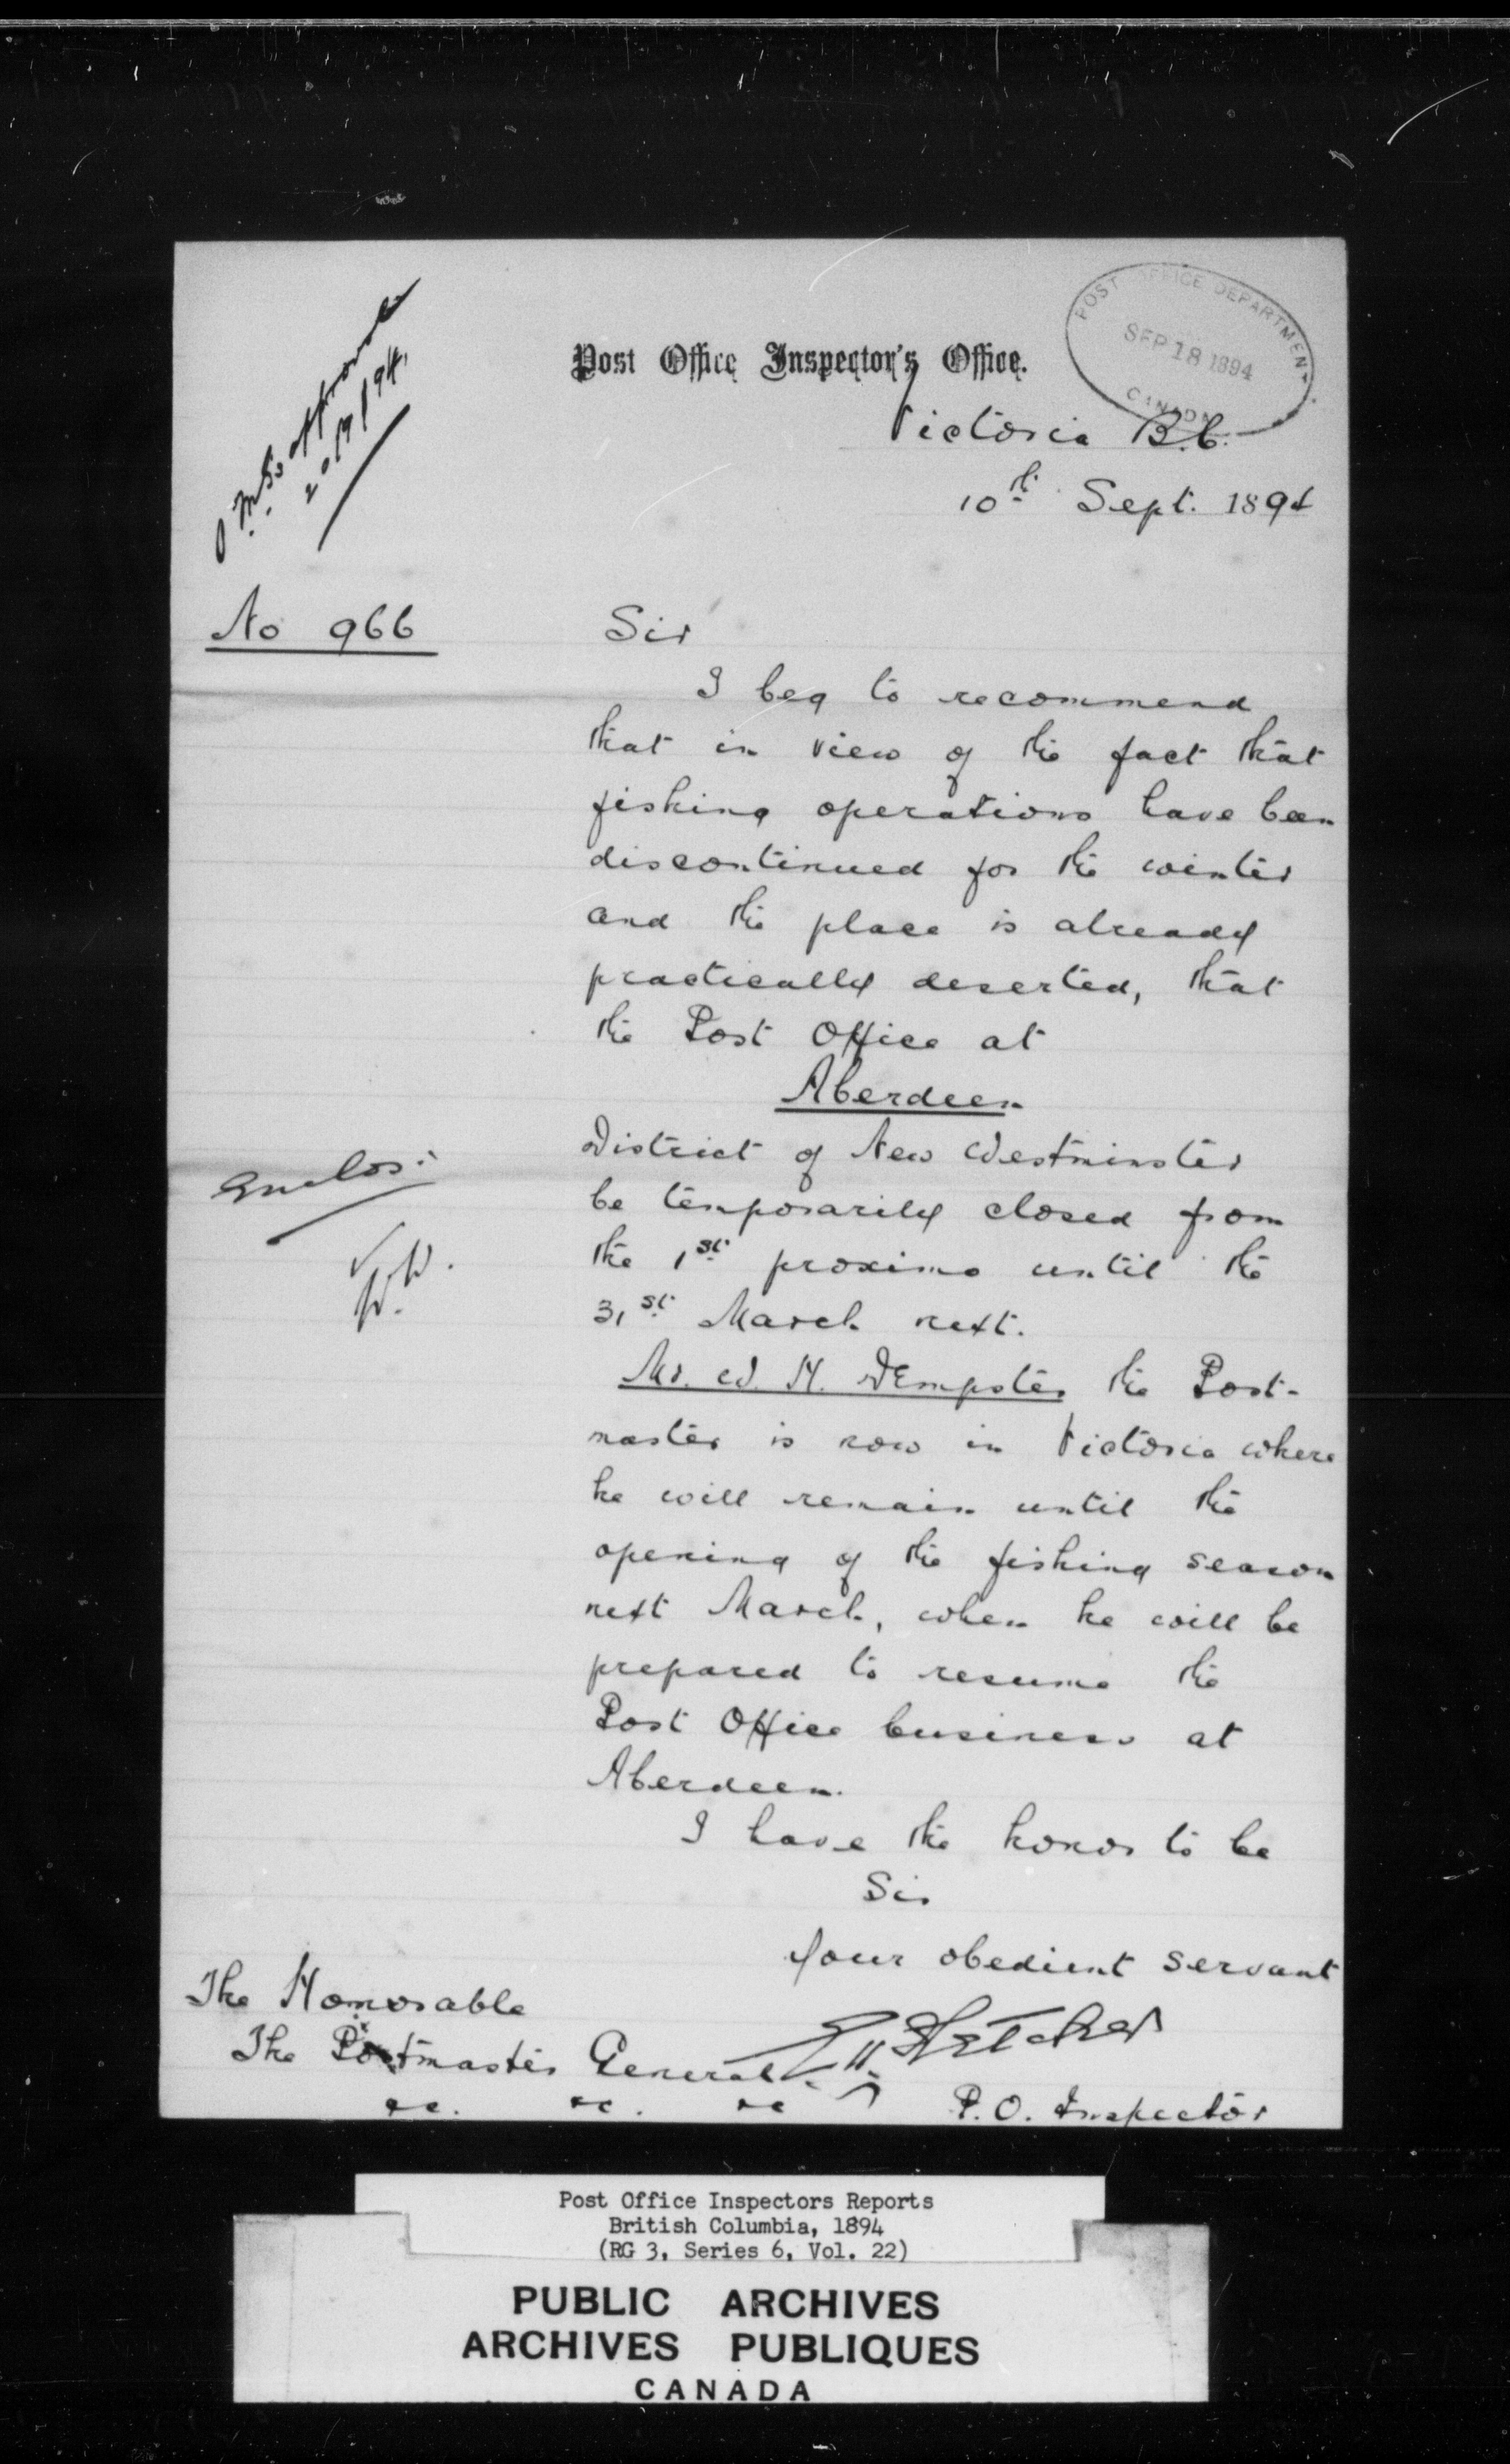 P.M.G's approval
20/9/94.
Post Office Inspector's Office.
POST OFFICE DEPARTMENT
SEP 18 1894
CANADA
Victoria B.C.
10th Sept. 1894
No 966
Sir
I beg to recommend
that in view of the fact that
fishing operations have been
discontinued for the winter
and the place is already
practically deserted, that
the Post Office at
Aberdeen
District of New Westminster
be temporarily closed from
the 1st proximo until the
31st March next.
Enclos:
Mr. W. H. Dempster the Post-
master is now in Victoria where
he will remain until the
opening of the fishing season
next March, when he will be
prepared to resume the
Post Office business at
Aberdeen.
I have the honor to be
Sir
Your obedient servant
E.H. Fletcher
P.O. Inspector
The Honorable
The Postmaster General
&c. &c. &c
Post Office Inspectors Reports
British Columbia, 1894
(RG 3, Series 6, Vol. 22)
PUBLIC ARCHIVES
ARCHIVES PUBLIQUES
CANADA